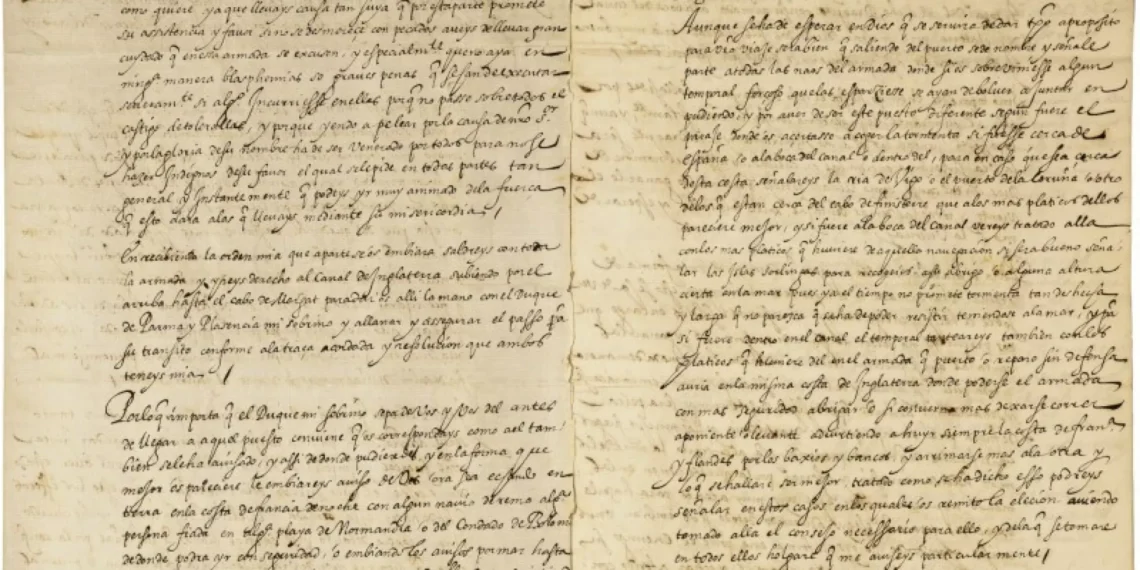 como quiere, ya que llevays causa tan suya q̃ por esta parte promete
su assistencia y favor si no se desmerece con pecados aveys de llevar gran
cuydado q̃ en essa armada se excusen, y especialmte que no aya en
ningª manera blasphemias so graves penas q̃ se han de executar
severamte si algº incurriesse en ellas porq̃ no passe sobre todos el
castigo de tolerallas, y porque yendo a pelear por la causa de nro Sr
y por la gloria de su nombre ha de ser venerado por todos para no se
hazer indignos de su favor el qual se le pide en todas partes tan
general e instantemente q̃ podeys yr muy animado de la fuerça
q̃ esto dara a los q̃ llevays mediante su misericordia /
En recibiendo la orden mia que a parte se os embiara saldreys con toda
la armada y yreys derecho al Canal de Inglaterra subiendo por el
arriba hasta el cabo de Margat para daros alli la mano con el Duque
de Parma y Plasencia mi sobrino y allanar y assegurar el passo pª
su transito conforme a la traça acordada y resolucion que ambos
teneys mia /
Por lo q̃ importa q̃ el Duque mi sobrino sepa de Vos y Vos del antes
de llegar a aquel puesto conviene q̃ os correspondays como a el tam-
bien se le ha avisado, y assi de donde pudieredes y en la forma que
mejor os pareciere le embiareys aviso de Vos ora sea echando en
tierra en la costa de francia de noche con algun navio de remo algª
persona fiada en playa de Normandia o del Condado de
de donde podra yr con seguridad, o embiando los avisos por mar hasta
Aunque se ha de esperar en Dios q̃ se servira de dar tpo a proposito
para via viaje sera bien q̃ saliendo del puerto se de nombre y señale
parte a todas las naos del armada donde si os sobreviniesse algun
temporal forçoso que las esparziesse se ayan de bolver a juntar en
pudiendo, y por aver de ser este puesto diferente segun fuere el
paraje donde os acertasse a coger la tormenta si fuesse cerca de
españa, o a la boca del canal o dentro del, para en caso que sea cerca
desta costa, señalareys la ria de Vigo o el puerto de la Coruña u otro
de los q̃ estan cerca del cabo de finisterre que a los mas platicos dellos
pareciere mejor, y si fuere a la boca del Canal vereys tratado alla
con los mas platicos q̃ huviere de aquella navegacion si sera bueno seña-
lar las Islas Sorlingas para recogeros a su abrigo o alguna altura
cierta en la mar pues ya el tiempo no promete tormenta tan deshecha
y larga q̃ no parezca q̃ se ha de poder resistir teniendose a la mar, y pª
si fuere dentro en el canal el temporal tratareys tambien con los
platicos q̃ huviere del en el armada q̃ puerto o reparo sin defensa
avria en la misma costa de Inglaterra donde poderse el armada
con mas seguridad abrigar o si converna mas dexarse correr
a poniente o levante advirtiendo a huyr siempre la costa de franª
y flandes por los baxios y bancos, y arrimarse mas a la otra y
lo q̃ se hallare ser mejor tratado como se ha dicho esso podreys
señalar en estos casos en los quales os remito la elecion aviendo
tomado alla el consejo necessario para ello, y de la q̃ se tomare
en todos ellos holgare q̃ me aviseys particularmente /